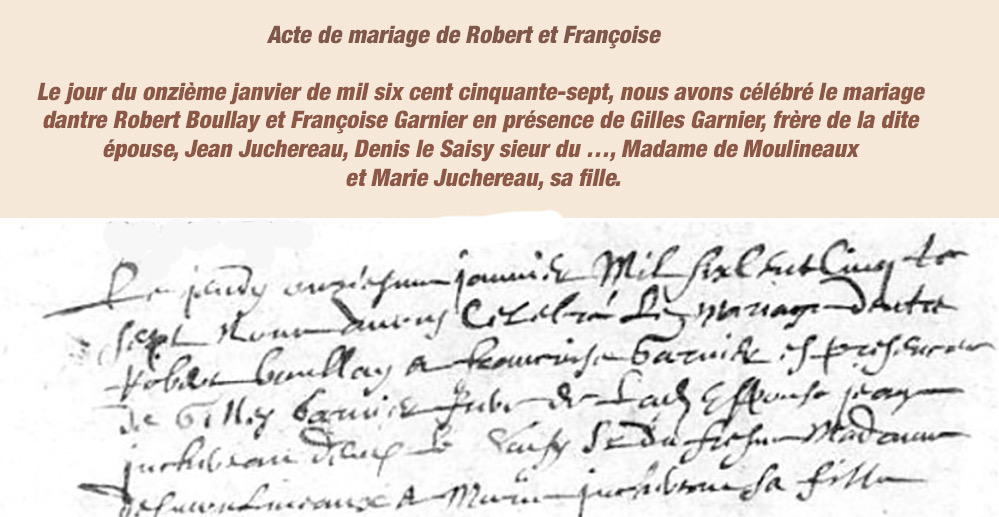 Acte de mariage de Robert et Françoise
Le jour du onzième janvier de mil six cent cinquante-sept, nous avons célébré le mariage
dantre Robert Boullay et Françoise Garnier en présence de Gilles Garnier, frère de la dite
épouse, Jean Juchereau, Denis le Saisy sieur du …, Madame de Moulineaux
et Marie Juchereau, sa fille.
Le jeudy janvier Mil six Cent Cinq te
sept Nous avons Celebré Le mariage dantre
Robert boullay et francoise Garnier
De Gilles Garnier frere de Lad Espouse jean
juchereau Denis Le Sr Du Madame
De moulineaux et Marie juchereau sa fille